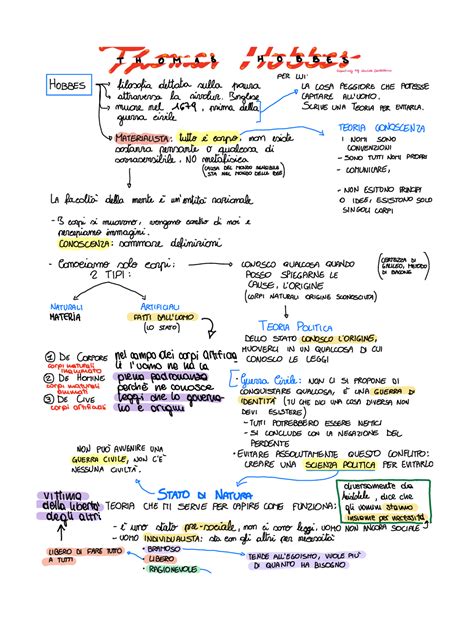 THOMAS HOBBES
HOBBES
filosofia dettata sulla paura
attraversa la rivoluz. Inglese
muore nel 1679, prima della
guerra civile
PER LUI:
LA COSA PEGGIORE CHE POTESSE
CAPITARE ALL'UOMO.
SCRIVE UNA TEORIA PER EVITARLA.
MATERIALISTA: tutto è corpo, non esiste
sostanza pensante o qualcosa di
sovrasensibile. NO metafisica
(CAUSA DEL MONDO SENSIBILE
STA NEL MONDO DELLE IDEE)
TEORIA CONOSCENZA
I NOMI SONO
CONVENZIONI
- SONO TUTTI NOMI PROPRI
- COMUNICARE,
- NON ESISTONO PRINCIPI
O IDEE, ESISTONO SOLO
SINGOLI CORPI
LA facoltà della mente è un'entità razionale
- I corpi si muovono, vengono verso di noi e
percepiamo immagini.
CONOSCENZA: sommare definizioni
- Conosciamo solo corpi:
2 TIPI:
CONOSCO QUALCOSA QUANDO
POSSO SPIEGARNE LE
CAUSE, L'ORIGINE
(CORPI NATURALI ORIGINE SCONOSCIUTA)
(CERTEZZA DI
GALILEO, METODO
DI BACONE)
NATURALI
MATERIA
ARTIFICIALI
FATTI DALL'UOMO
(LO STATO)
TEORIA POLITICA
DELLO STATO CONOSCO L'ORIGINE,
MUOVERLI IN UN QUALCOSA DI CUI
CONOSCO LE LEGGI
① DE CORPORE
corpi naturali
inanimati
② DE HOMINE
corpi naturali
animati
③ DE CIVE
corpi artificiali
nel campo dei corpi artificiali
l'uomo ne ha la
piena padronanza
perchè ne conosce
leggi che lo governa-
no e origini
• Guerra Civile: NON CI SI PROPONE DI
CONQUISTARE QUALCOSA, È UNA GUERRA DI
IDENTITÀ (TU CHE DICI UNA COSA DIVERSA NON
DEVI ESISTERE)
- TUTI POTREBBERO ESSERE NEMICI
- SI CONCLUDE CON LA NEGAZIONE DEL
PERDENTE
• EVITARE ASSOLUTAMENTE QUESTO CONFLITTO:
CREARE UNA SCIENZA POLITICA PER EVITARLO
NON PUÒ AVVENIRE UNA
GUERRA CIVILE, NON C'È
NESSUNA CIVILTÀ.
STATO DI NATURA
TEORIA CHE MI SERVE PER CAPIRE COME FUNZIONA:
diversamente da
Aristotele, dice che
gli uomini stanno
insieme per necessità
vittima
della libertà
degli altri
- è uno stato pre-sociale, non ci sono leggi, UOMO NON ANCORA SOCIALE
- UOMO INDIVIDUALISTA: sta con gli altri per necessità
• BRAMOSO
• LIBERO
• RAGIONEVOLE
LIBERO DI FARE TUTTO
A TUTTI
TENDE ALL'EGOISMO, VUOLE PIÙ
DI QUANTO HA BISOGNO